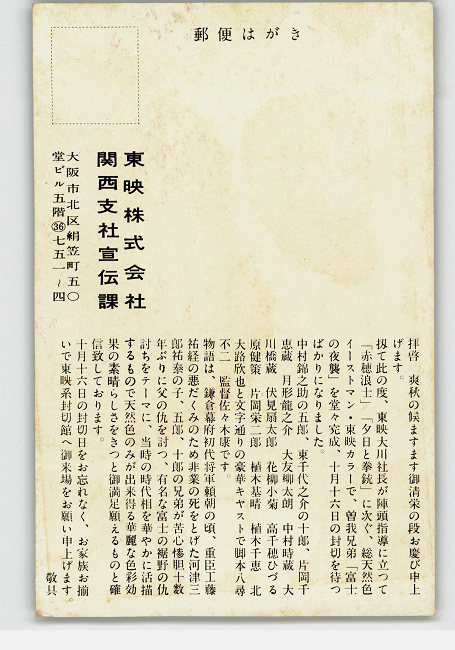 郵便はがき
東映株式会社
関西支社宣伝課
大阪市北区絹笠町五〇
堂ビル五階㊱七五一〜四
拝啓 爽秋の候ますます御清栄の段お慶び申上
げます。
扨て此の度、東映大川社長が陣頭指導に立つて
「赤穂浪士」「夕日と拳銃」に次ぐ、総天然色
イーストマン・東映カラーで、曽我兄弟「富士
の夜襲」を堂々完成、十月十六日の封切を待つ
ばかりになりました。
中村錦之助の五郎、東千代之介の十郎、片岡千
恵蔵 月形龍之介 大友柳太朗 中村時蔵 大
川橋蔵 伏見扇太郎 花柳小菊 高千穂ひづる
原健策 片岡栄二郎 植木基晴 植木千恵 北
大路欣也と文字通りの豪華キャストで脚本八尋
不二 監督佐々木康です。
物語は、鎌倉幕府初代将軍頼朝の頃、重臣工藤
祐経の悪だくみのため非業の死をとげた河津三
郎祐泰の子、五郎、十郎の兄弟が苦心惨胆十数
年ぶりに父の仇を討つ、有名な富士の裾野の仇
討ちをテーマに、当時の時代相を華やかに活描
するもので天然色のみが出来得る華麗な色彩効
果の素晴らしさをきつと御満足願えるものと確
信致しております。
十月十六日の封切日をお忘れなく、お家族お揃
いで東映系封切館へ御来場をお願い申上げます。
敬具